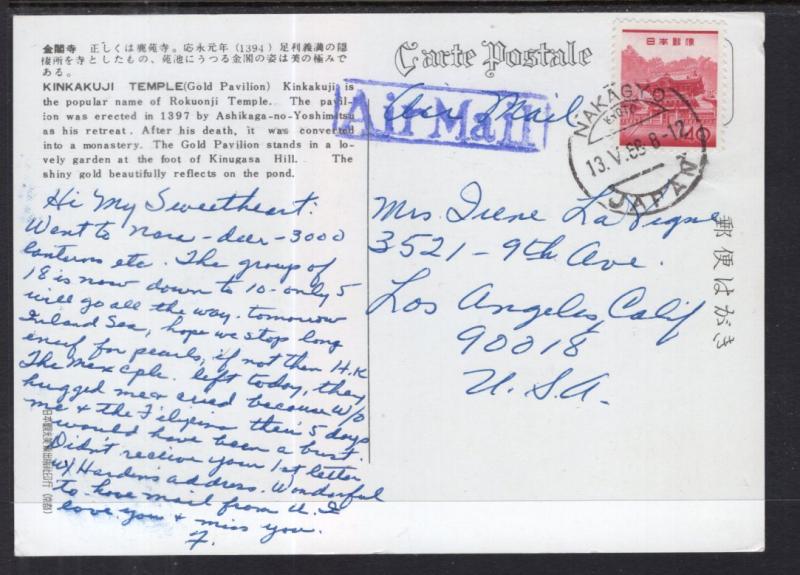 金閣寺 正しくは鹿苑寺。応永元年(1394)足利義満の隠
棲所を寺としたもの、苑池にうつる金閣の姿は美の極みで
ある。
KINKAKUJI TEMPLE(Gold Pavilion) Kinkakuji is
the popular name of Rokuonji Temple. The pavil-
ion was erected in 1397 by Ashikaga-no-Yoshimitsu
as his retreat. After his death, it was converted
into a monastery. The Gold Pavilion stands in a lo-
vely garden at the foot of Kinugasa Hill. The
shiny gold beautifully reflects on the pond.
Hi My Sweetheart.
Went to Nara-deer-3000
lanterns etc. The groups of
18 is now down to 10-only 5
will go all the way. tomorrow
Inland Sea, hope we stop long
enuf for pearls, if not then H.K
The Mex cple. left today, they
hugged me & cried because w/o
me & the Filipino their 5 days
would have been a bust.
Didn't receive your 1st letter
w/ Hardens address. Wonderful
to have mail from U. I
love you & miss you.
F.
Carte Postale
Air Mail
Air Mail
日本郵便
NAKAGYO
KYOTO
13.V.68.8-12
JAPAN
Mrs Irene La Vigne
3521-9th Ave.
Los Angeles, Calif
90018
U.S.A.
郵便はがき